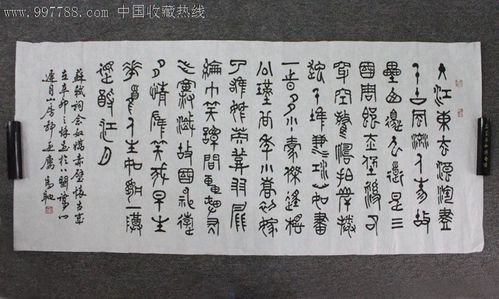 大江東去浪淘盡
千古風流人物故
壘西邊人道是三
國周郎赤壁
穿空驚濤拍岸
千堆雪江山如畫
一時多少豪傑遙想
公瑾當年小喬初嫁
了雄姿英發羽扇
綸巾笑談間
故國神遊
多情應笑我早生
華髮人生如夢一尊
還酹江月
蘇軾詞念奴嬌赤壁懷古歲
在辛卯之秋
www.997788.com 中国收藏热线